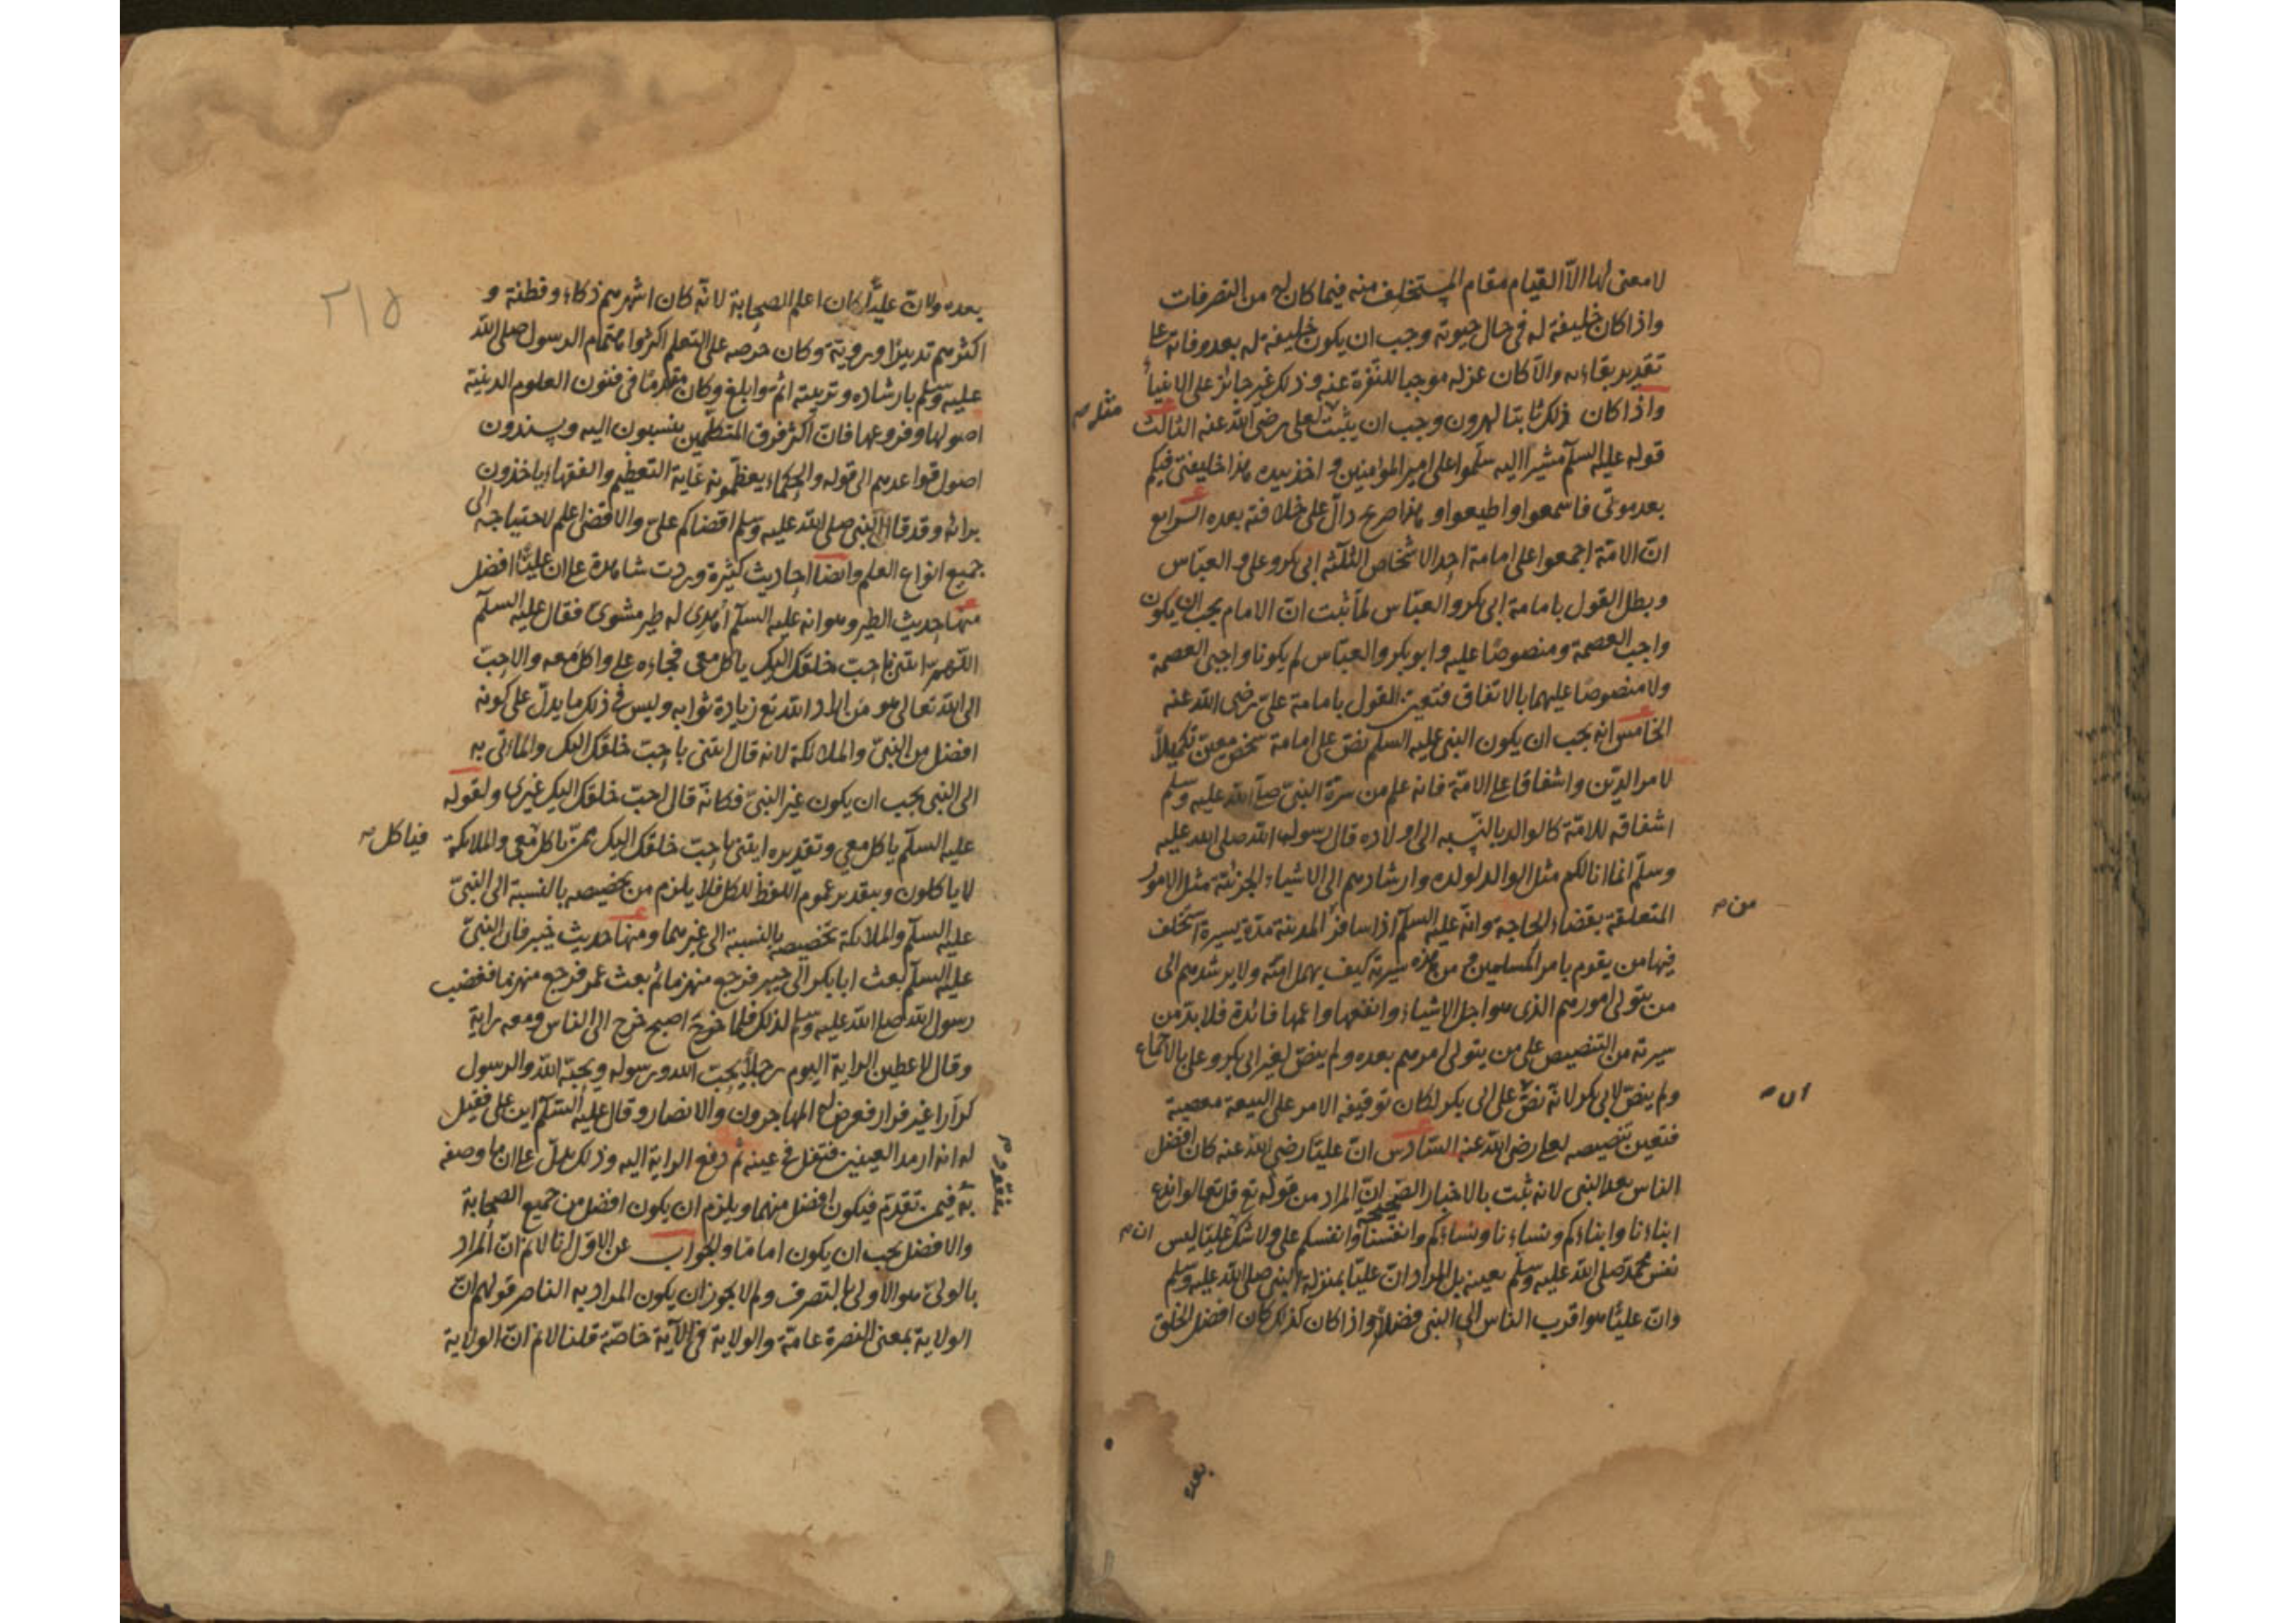 لا معنى لها الا القيام مقام المستخلف منه فيما كان له من التصرفات
واذا كان خليفة له في حال حيوته وجب ان يكون خليفة له بعد وفاته على
تقدير بقاءه والا كان عزله موجبا للنفرة عنه وذلك غير جائز على الانبياء
واذا كان ذلك ثابتا لهرون وجب ان يثبت لعلى رضى الله عنه الثالث
مثله
قوله عليه السلم مشيرا اليه سلموا على امير المومنين و اخذ بيده هذا خليفتى فيكم
بعد موتى فاسمعوا واطيعوا و هذا صريح دال على خلافته بعده الرابع
ان الامة اجمعوا على امامة احد الاشخاص الثلثة ابى بكر وعلى و العباس
وبطل القول بامامة ابى بكر والعباس لما ثبت ان الامام يجب ان يكون
واجب العصمة ومنصوصا عليه وابو بكر والعباس لم يكونا واجبى العصمة
ولا منصوصا عليهما بالاتفاق فتعين القول بامامة على رضى الله عنه
الخامس انه يجب ان يكون النبى عليه السلم نص على امامة شخص معين تكميلا
لامر الدين واشفاقا على الامة فانه علم من سيرة النبى صلى الله عليه وسلم
اشفاقه للامة كالوالد بالنسبه الى اولاده قال رسول الله صلى الله عليه
وسلم انما انا لكم مثل الوالد لولده وارشادهم الى الاشياء الجزئية مثل الامور
المتعلقة بقضاء الحاجة وانه عليه السلم اذا سافر المدينة مدة يسيرة استخلف
من
فيها من يقوم بامر المسلمين من هذه سيرته كيف يهمل امته ولا يرشدهم الى
من يتولى امورهم الذى هو اجل الاشياء وانفعها واعمها فائدة فلا بد من
سيرته من التنصيص على من يتولى امرهم بعده ولم ينص لغير ابى بكر وعلى بالاجماع
ولم ينص لابى بكر لانه نص على ابى بكر لكان توقيفه الامر على البيعة معصية
فتعين تنصيصه لعلى رضى الله عنه السادس ان عليا رضى الله عنه كان افضل
الناس بعد النبى لانه ثبت بالاخبار الصحيحة ان المراد من قوله تع قل تعالوا ندع
ابناءنا وابناءكم ونساءنا ونساءكم وانفسنا وانفسكم على ولا شك عليا ليس
ان
نفس محمد صلى الله عليه وسلم بعينه بل المراد ان عليا بمنزلة النبى صلى الله عليه وسلم
وان عليا هو اقرب الناس الى النبى فضلا واذا كان كذلك كان افضل الخلق
بعده
٢١٥
بعده ولان عليا كان اعلم الصحابة لانه كان اشهرهم ذكاء وفطنة و
اكثرهم تدبيرا وروية وكان حرصه على التعلم اكثر واهتمام الرسول صلى الله
عليه وسلم بارشاده وتربيته اتم وابلغ وكان مقدما في فنون العلوم الدينية
اصولها وفروعها فان اكثر فرق المتكلمين ينسبون اليه ويسندون
اصول قواعدهم الى قوله والحكماء يعظمونه غاية التعظيم والفقهاء ياخذون
برائه وقد قال النبى صلى الله عليه وسلم اقضاكم على والاقضى اعلم لاحتياجه الى
جميع انواع العلم وايضا احاديث كثيرة وردت شاهدة على ان عليا افضل
منها حديث الطير وهو انه عليه السلم أهدى له طير مشوى فقال عليه السلم
اللهم ائتنى باحب خلقك اليك ياكل معى فجاءه على واكل معه والاحب
الى الله تعالى هو من اراد الله تع زيادة ثوابه وليس فى ذلك ما يدل على كونه
افضل من النبى والملائكة لانه قال ائتنى باحب خلقك اليك والماتى به
الى النبى يجب ان يكون غير النبى فكانه قال احب خلقك اليك غيرى ولقوله
عليه السلم ياكل معى وتقديره ايتنى باحب خلقك اليك ممن ياكل معى والملائكة
فياكل
لا ياكلون وبتقدير عموم اللفظ للكل فلا يلزم من تخصيصه بالنسبة الى النبى
عليه السلم والملائكة تخصيصه بالنسبة الى غيرهما ومنها حديث خيبر فان النبى
عليه السلم بعث ابا بكر الى خيبر فرجع منهزما ثم بعث عمر فرجع منهزما فغضب
رسول الله صلى الله عليه وسلم لذلك فلما اصبح خرج الى الناس ومعه راية
وقال لاعطين الراية اليوم رجلا يحب الله ورسوله ويحبه الله والرسول
كرارا غير فرار فعرض له المهاجرون والانصار وقال عليه السلم اين على فقيل
له انه ارمد العينين فتفل في عينه ثم دفع الراية اليه وذلك يدل على ان ما وصفه
به فيمن تقدم فيكون افضل منهما ويلزم ان يكون افضل من جميع الصحابة
والافضل يجب ان يكون اماما والجواب عن الاول انا لا نم ان المراد
بالولى هو الاولى بالتصرف ولم لا يجوز ان يكون المراد به الناصر قولهم ان
الولاية بمعنى النصرة عامة والولاية في الآية خاصة قلنا لا نم ان الولاية